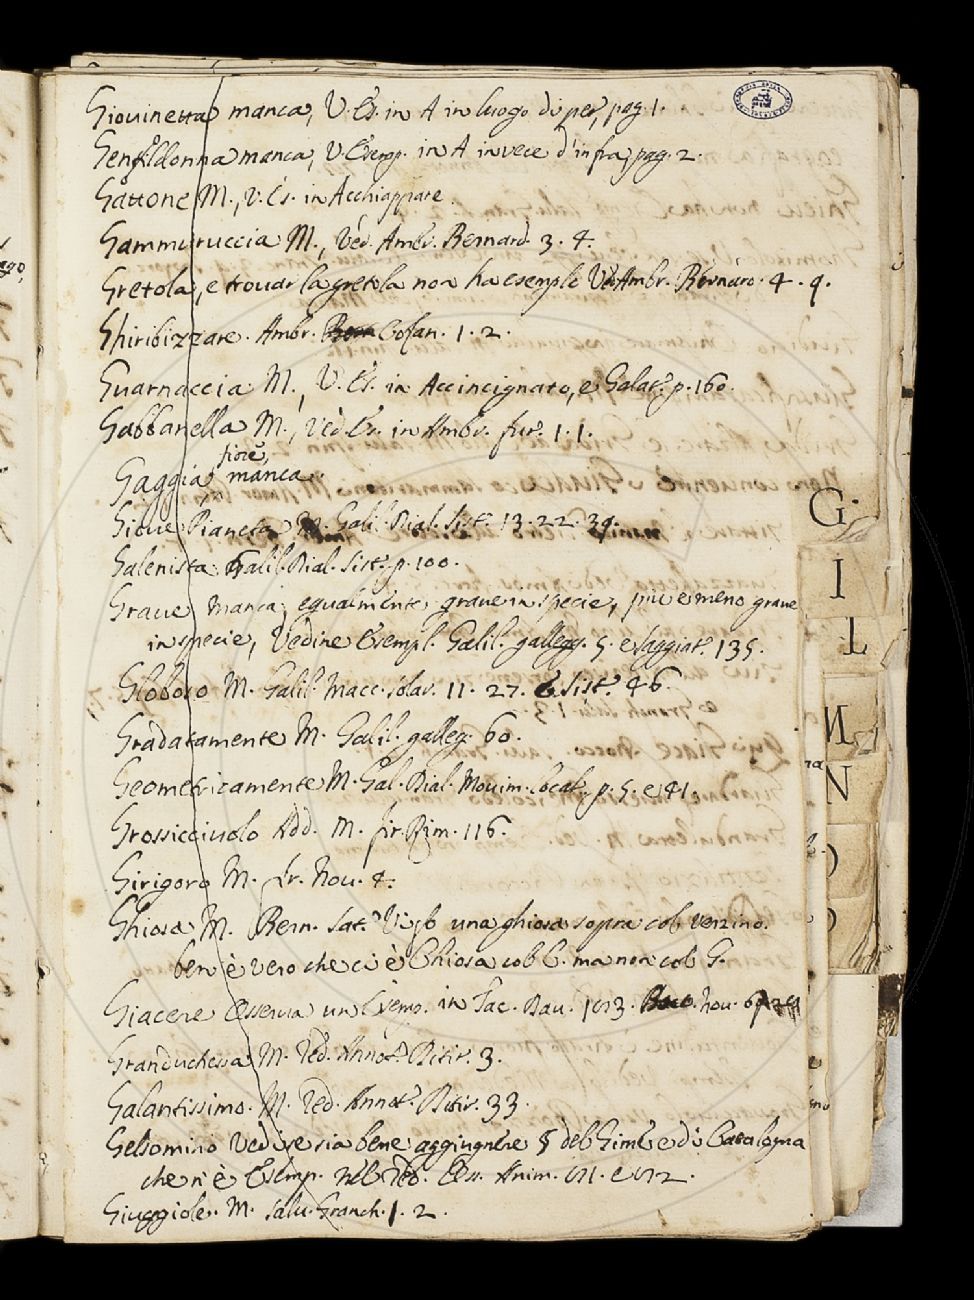 Giovinetta manca, V. Es. in A in luogo di per, pag. 1.
Gentildonna manca, V. Esemp. in A in vece d'infra, pag. 2.
Gattone M., V. Es. in Acchiappare.
Gammurruccia M., Ved. Ambr. Bernard. 3. 4.
Gretola, e trovar la gretola non ha esemplo Ved. Ambr. Bernard. 4. 9.
Ghiribizzare. Ambr. Cofan. 1. 2.
Guarnaccia M., V. Es. in Accincignato, e Galat. p. 160.
Gabbanella M., Ved. Es. in Ambr. fur. 1. 1.
fiore,
Gaggia manca.
Giove Pianeta Galil. Dial. Sist. 13. 22. 39.
Galenista Galil. Dial. Sist. p. 100.
Grave manca, egualmente grave in specie, più e meno grave
in specie, Vedine Esempl. Galil. gallegg. 5. e Saggiat. 135.
Globoso M. Galil. Macc. Solar. 11. 27. e Sist. 46.
Gradatamente M. Galil. galleg. 60.
Geometricamente M. Gal. Dial. Movim. local. p. 5. e 41.
Grossicciuolo Add. M. fir. Rim. 116.
Girigoro M. Fr. Nov. 4.
Ghiosa M. Bern. Sat. una ghiosa sopra col verzino.
ben è vero che ci è Chiosa col C. ma non col G.
Giacere Osserva un Esemp. in Fac. Nov. 6
Granduchessa M. Red. Annot. Ditir. 3.
Galantissimo. M. Red. Annot. Ditir. 33.
Gelsomino Vedi se sia bene aggiugnere § del Gimè e di Catalogna
che n'è Esemp. nel Red. Oss. Anim.
Giuggiole. M. Salv. Granch. 1. 2.
G
I
L
M
N
O